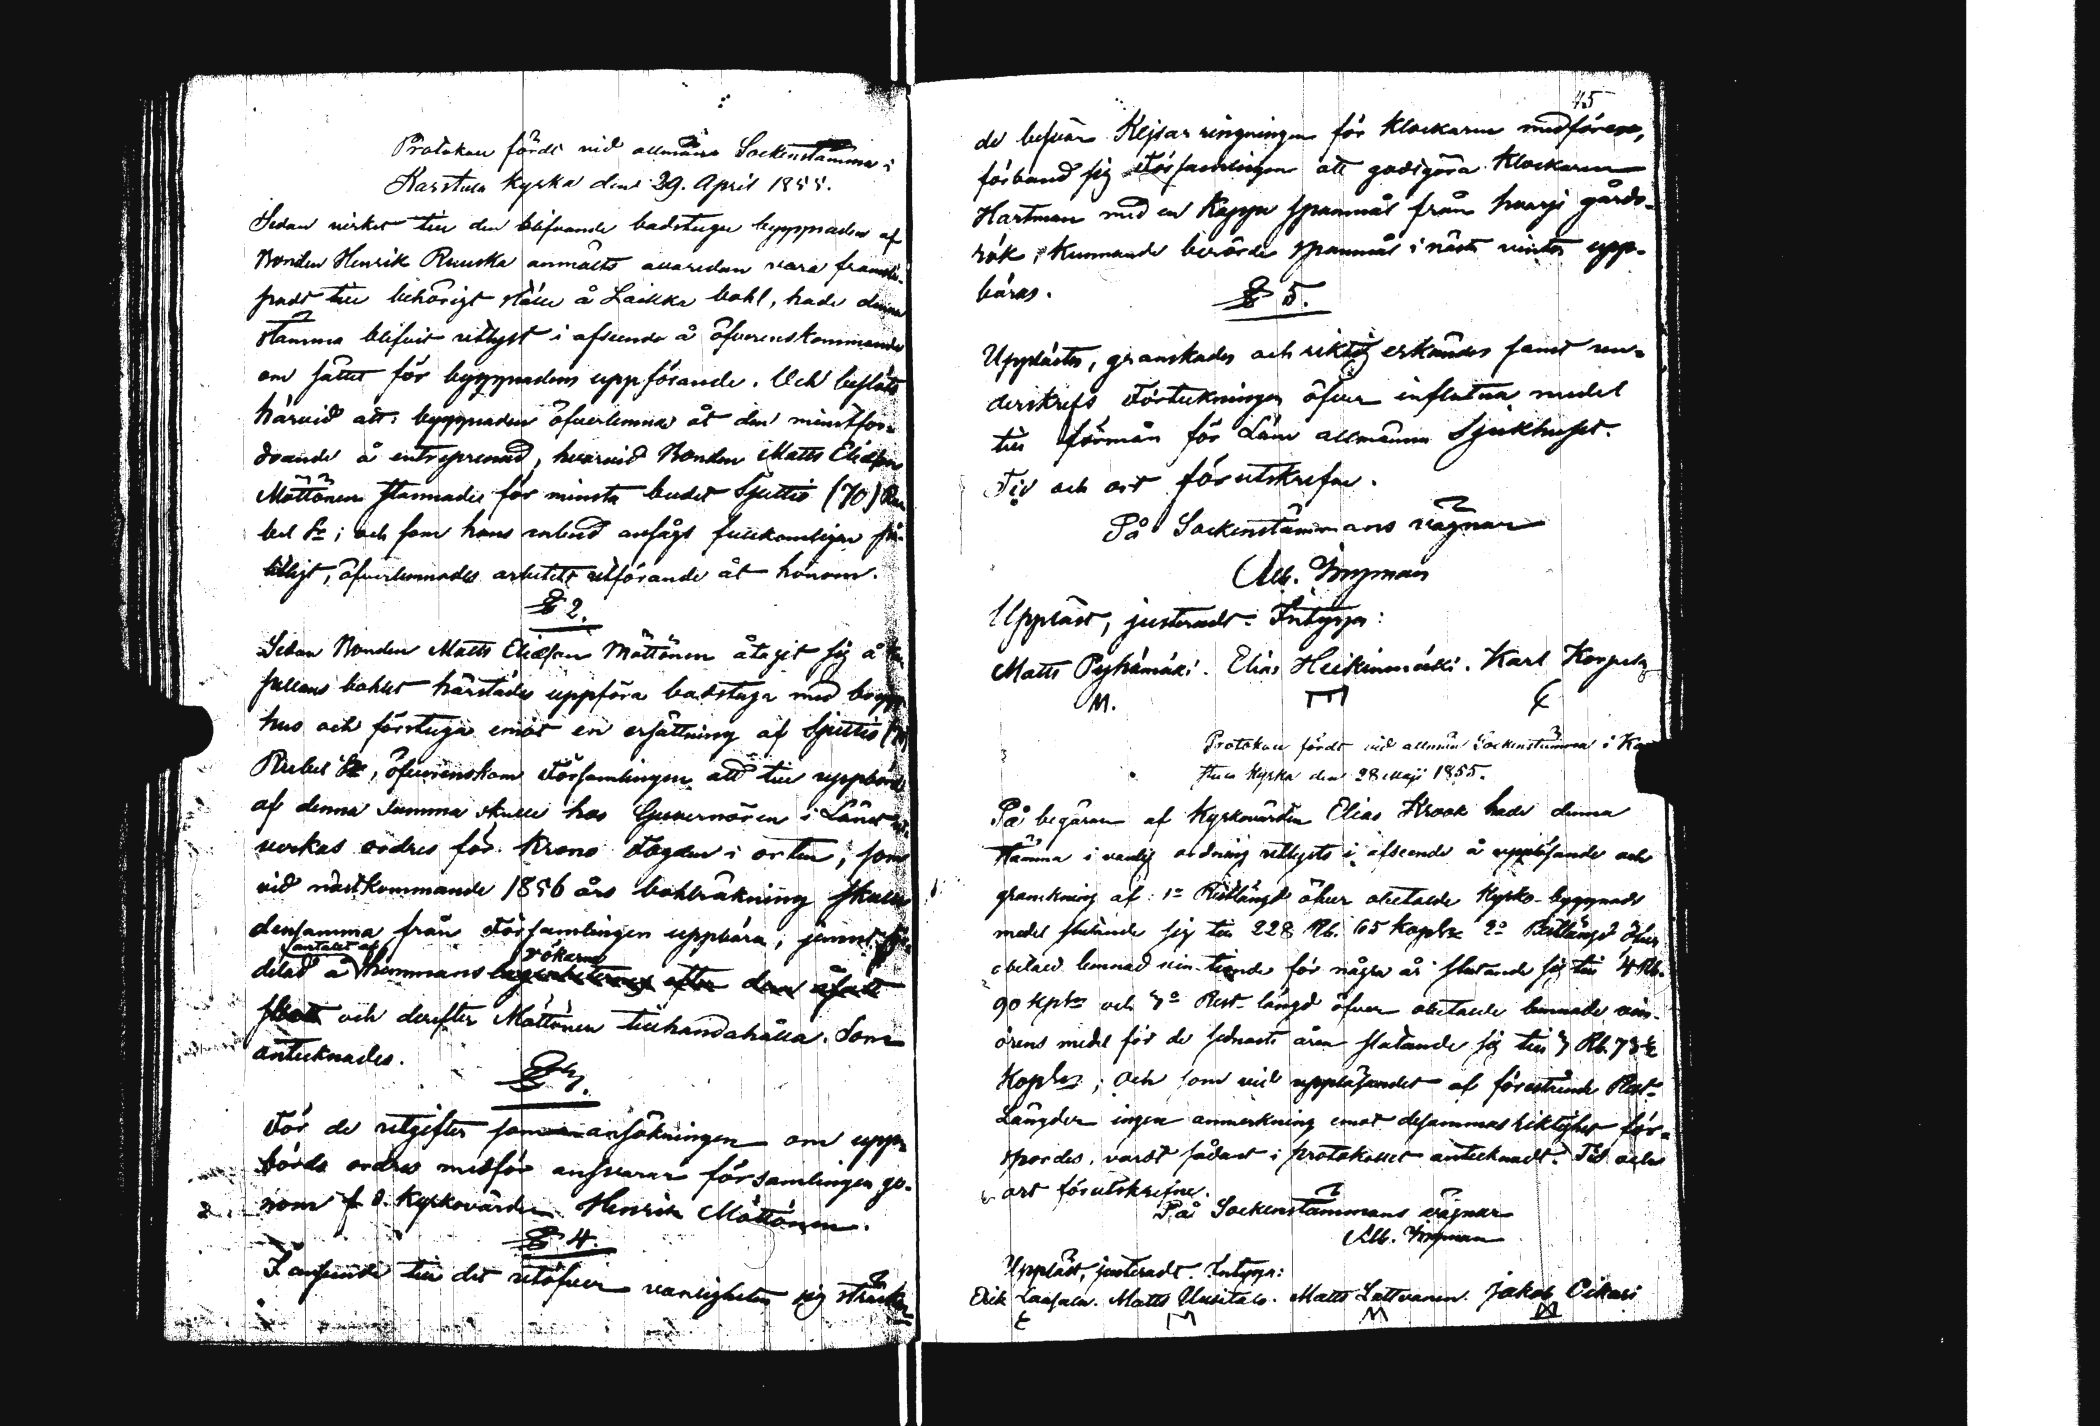 Protokoll fördt vid allmänna Sockenstämma i
Karstula Kyrka den 29. April 1855.
Sedan virket till den blifvande badstugu byggnaden af
Bonden Henrik Ruuska anmälts allaredan vara framsläpadt
till behörigt ställe å Laikka bohl, hade denna
stämma blifvit utlyst i afseende å öfverenskommande
om sättet för byggnadens uppförande. Och beslöts
härvid att byggnaden öfverlemna åt den minstfor-
drande å entreprenad, hvarvid Bonden Matts Eliasson
Möttönen stannade för minsta budet Sjuttio (70) Ru-
bel Sr; och som hans anbud ansågs fullkomligen
billigt, öfverlemnades arbetets utförande åt honom.
§ 2.
Sedan Bonden Matts Eliasson Möttönen åtagit sig å
bohlet härstädes uppföra badstuga med
hus och förstuga emot en ersättning af Sjuttio (70)
Rubel Sr, öfverenskom Församlingen att till uppbörd
af denna summa skulle hos Guvernören i Länet ut-
verkas ordres för Krono Fogden i orten, som
vid nästkommande 1856 års bohlräkning skulle
densamma från Församlingen uppbära, jemnt för-
antalet af rökarne
delad å hemmans efter den
och derefter Möttönen tillhandahålla. Som
antecknades.
§ 3.
För de utgifter som ansökningen om upp-
börds ordres medför ansvarar församlingen ge-
nom f. d. Kyrkovärden Henrik Möttönen.
§ 4.
I anseende till det utöfver vanligheten sig sträckan-
45
de besvär Kejsar ringningen för Klockaren medförer,
förband sig Församlingen att godtgöra Klockaren
Hartman med en Kappe spannmål från hvarje gårds-
rök, kunnande berörde spannmål i nästa vinter upp-
bäras.
§ 5.
Upplästes, granskades och riktig erkändes samt un-
derskrefs Förteckningen öfver influtna medel
till förmån för Läns allmänna Sjukhuset.
Tid och ort förutskrefne.
På Sockenstämmans vägnar
Alb. Inyman
Uppläst, justeradt. Intyga:
Matts Pyhämäki. Elias Heikinmäki. Karl Korpela
M.
Protokoll fördt vid allmän Sockenstämma i Kar-
stula Kyrka den 28 Maji 1855.
På begäran af Kyrkovärden Elias Krook hade denna
stämma i vanlig ordning utlysts i afseende å uppläsande och
granskning af: 1o Restlängd öfver obetalde Kyrko-byggnads
medel slutande sig till 228 Rb 65 kop Sr 2o Restlängd öfver
obetald lemnad vin-tionde för några år slutande sig till 4 Rb.
90 kp Sr och 3o Rest-längd öfver obetalde lemnade vin-
örens medel för de sednaste åren slutande sig till 3 Rb. 73½
Kop Sr; och som vid uppläsandet af förestående Rest-
Längder ingen anmerkning emot desammas riktighet för-
spordes, vardt sådant i protokollet antecknadt. Tid och
ort förutskrefne.
På Sockenstämmans vägnar
Alb. Inyman
Uppläst, justeradt. Intyga:
Erik Laasala. Matts Uusitalo. Matts Lattvanen. Jakob Oikari